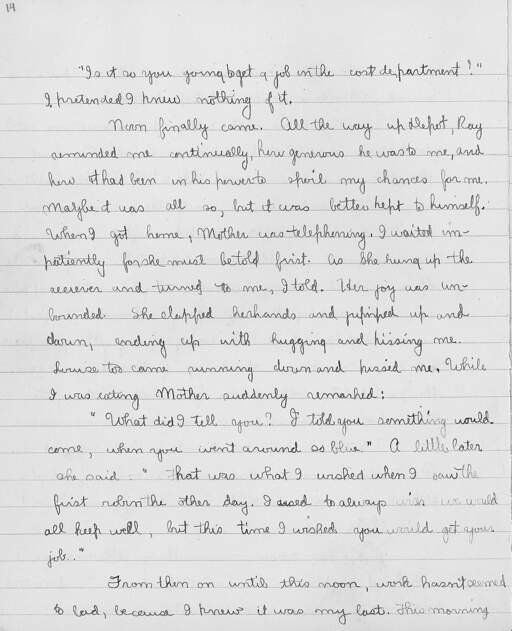 14
"Is it so you going to get a job in the cost department!"
I pretended I knew nothing of it.
Noon finally came. All the way up depot, Ray
reminded me continually, how generous he was to me, and
how it had been in his power to spoil my chances for me.
Maybe it was all so, but it was better kept to himself.
When I got home, Mother was telephoning. I waited im-
patiently for she must be told first. As she hung up the
receiver and turned to me, I told. Her joy was un-
bounded. She clapped her hands and jumped up and
down, ending up with hugging and kissing me.
Louise too came running down and kissed me. While
I was eating Mother suddenly remarked:
"What did I tell you? I told you something would
come, when you went around so blue." A little later
she said: "That was what I wished when I saw the
first robin the other day. I used to always wish we would
all keep well, but this time I wished you would get your
job."
From then on until this noon, work hasn't seemed
so bad, because I knew it was my last. This morning